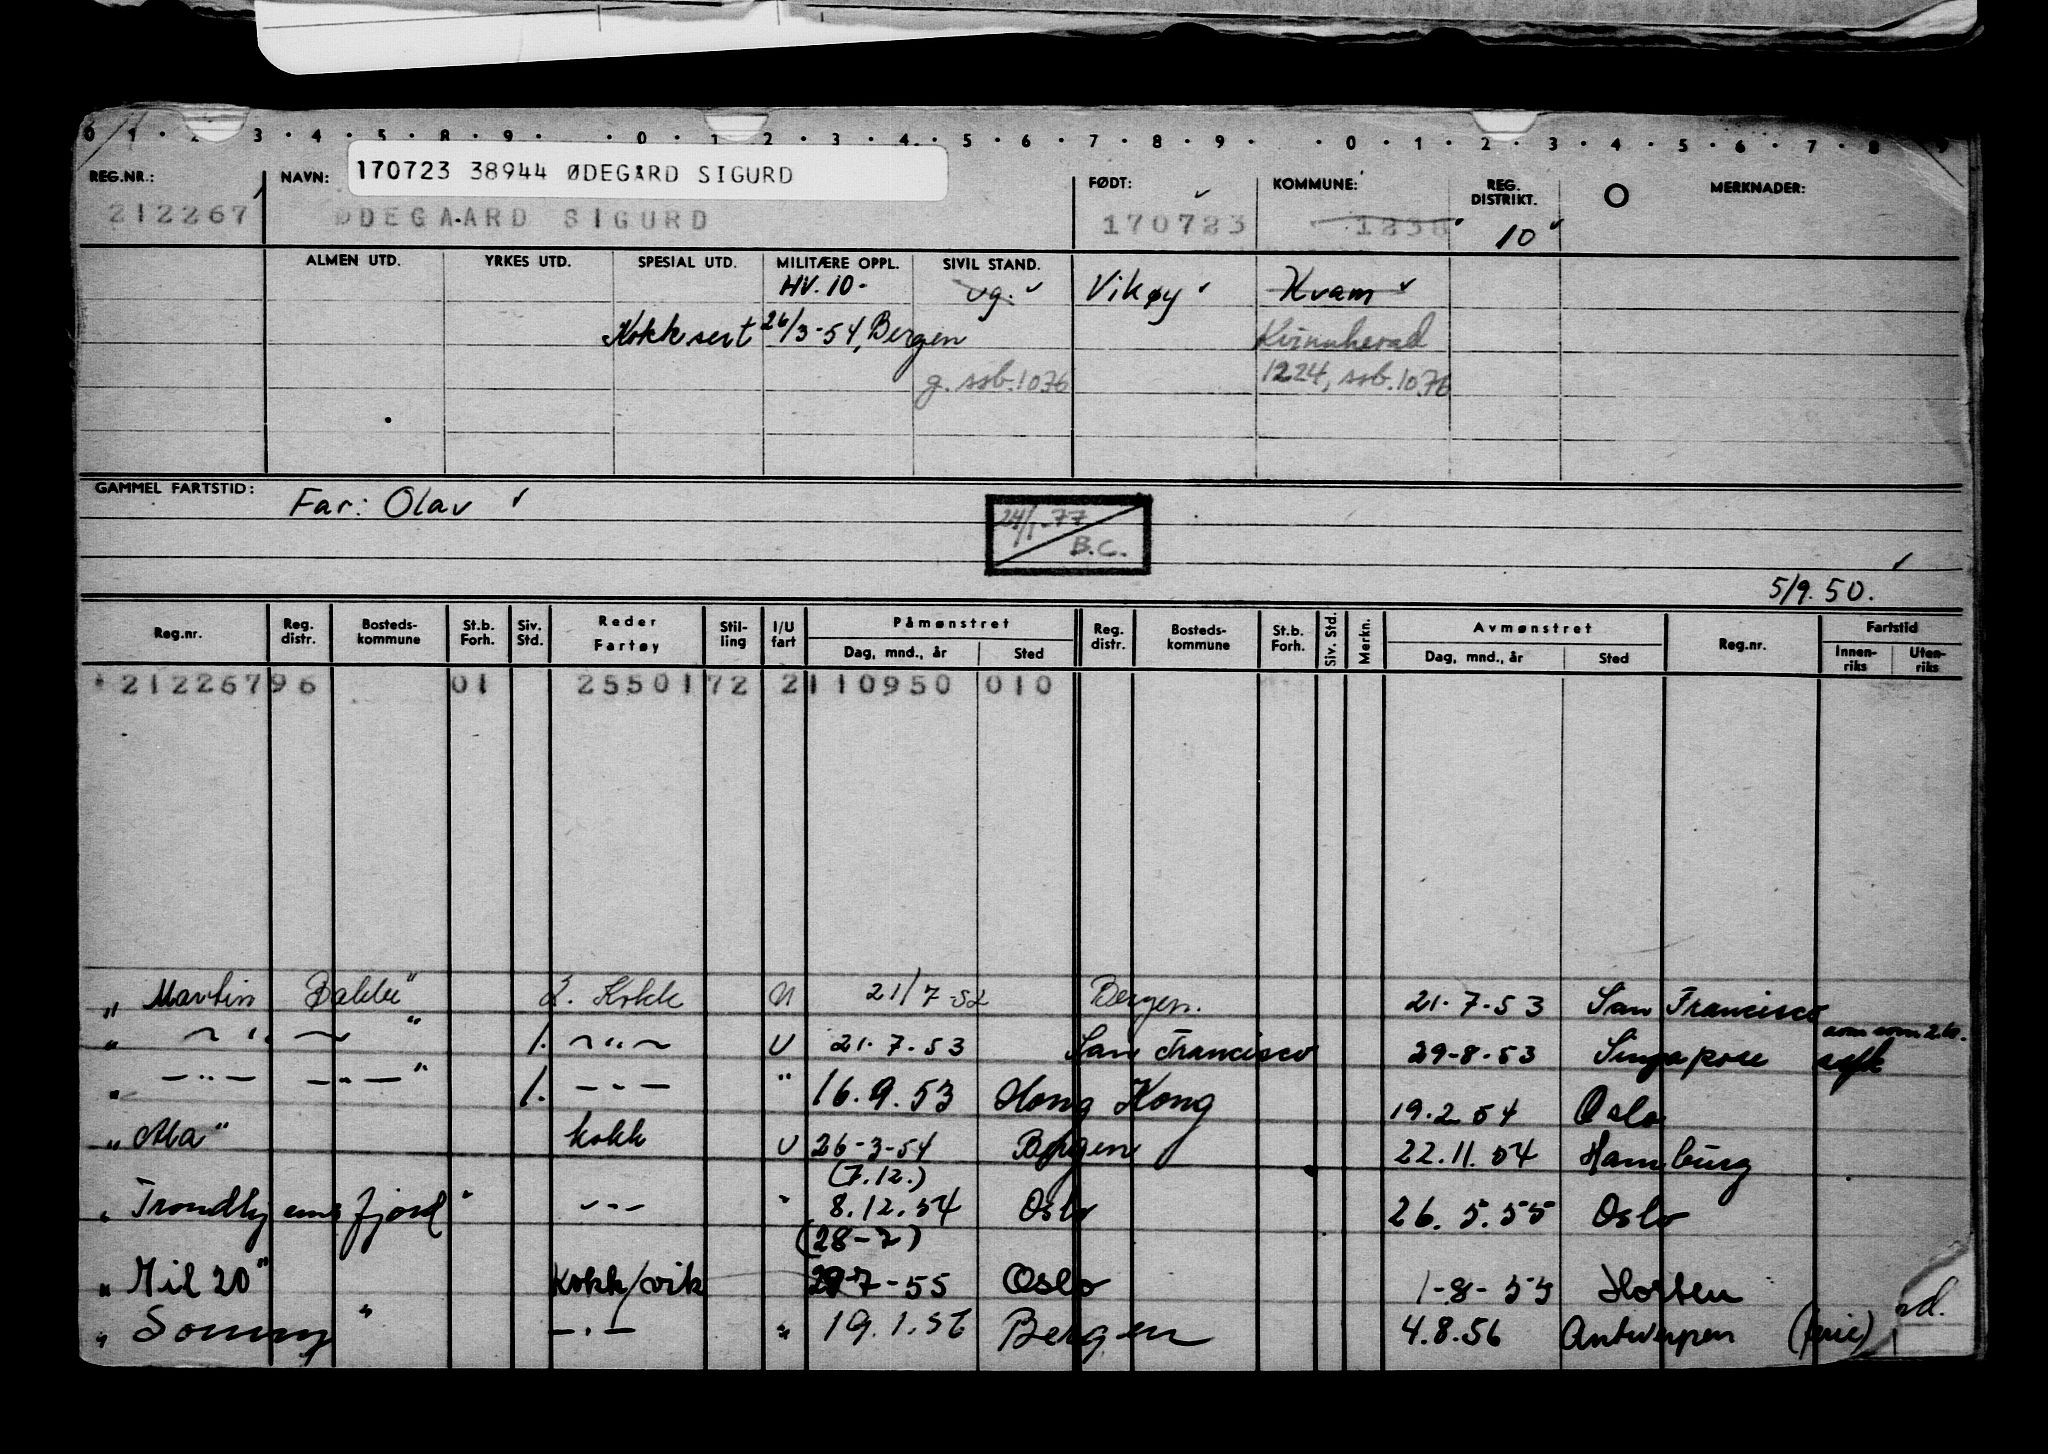 0 · 1 · 2 · 3 · 4 · 5 · 8 · 9 · · 0 · 1 · 2 · 3 · 4 · 5 · 6 · 7 · 8 · 9 · · 0 · 1 · 2 · 3 · 4 · 5 · 6 · 7 · 8 · 9
170723 38944 ØDEGÅRD SIGURD
REG.NR.: NAVN: FØDT: KOMMUNE: REG. DISTRIKT. O MERKNADER:
212267 ØDEGAARD SIGURD 170723 1238 10
ALMEN UTD. YRKES UTD. SPESIAL UTD. MILITÆRE OPPL. SIVIL STAND.
HV. 10- ug. Vikøy Kvam
Kokksert 26/3-54, Bergen Kvinnherad
g. ssb.1076 1224, ssb.1076
GAMMEL FARTSTID: Far: Olav
24/1-77
B.C.
5/9.50.
Reg.nr. Reg. distr. Bosteds-kommune St.b. Forh. Siv. Std. Reder Fartøy Stil-ling I/U fart Påmønstret Reg. distr. Bosteds-kommune St.b. Forh. Siv. Std. Merkn. Avmønstret Reg.nr. Fartstid
Dag, mnd., år Sted Dag, mnd., år Sted Innen-riks Uten-riks
21226796 01 2550172 2110950 010
„ Martin Bakke" 2. Kokk U 21/7-52 Bergen. 21-7-53 San Francisco
„ — " — " 1. — " — U 21-7-53 San Francisco 29-8-53 Singapore
„ — " — — " — " 1. — " — " 16.9.53 Hong Kong 19.2.54 Oslo
„ Ala" kokk U 26-3-54 Bergen 22.11.54 Hamburg
(7.12.)
„ Trondhjemsfjord" — " — " 8.12.54 Oslo 26.5.55 Oslo
(28-7)
„ Mil 20" Kokk/vik 29-7-55 Oslo 1-8-55 Horten
„ Sonny " — " — " 19.1.56 Bergen 4.8.56 Antwerpen